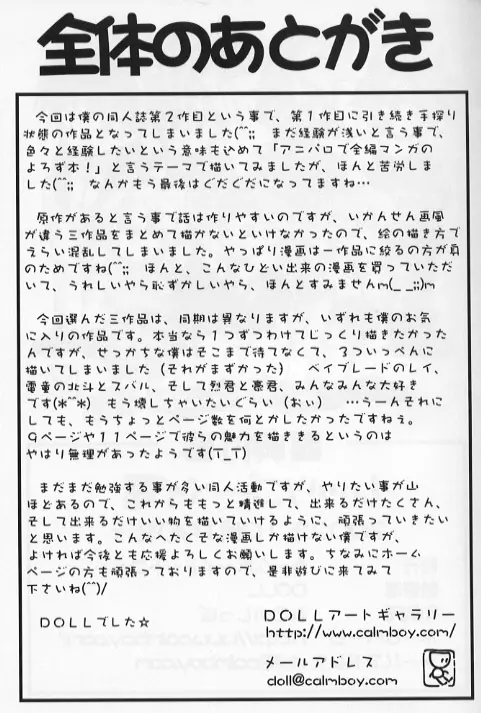 全体のあとがき
今回は僕の同人誌第2作目という事で、第1作目に引き続き手探り
状態の作品となってしまいました(^^;; まだ経験が浅いと言う事で、
色々と経験したいという意味も込めて「アニパロで全編マンガの
よろず本!」と言うテーマで描いてみましたが、ほんと苦労しま
した(^^;; なんかもう最後はぐだぐだになってますね…
原作があると言う事で話は作りやすいのですが、いかんせん画風
が違う三作品をまとめて描かないといけなかったので、絵の描き方で
えらい混乱してしまいました。やっぱり漫画は一作品に絞るの方が身
のためですね(^^;; ほんと、こんなひどい出来の漫画を買っていただ
いて、うれしいやら恥ずかしいやら、ほんとすみませんm(_ _;;)m
今回選んだ三作品は、同期は異なりますが、いずれも僕のお気
に入りの作品です。本当なら1つずつわけてじっくり描きたかった
んですが、せっかちな僕はそこまで待てなくて、3ついっぺんに
描いてしまいました(それがまずかった) ベイブレードのレイ、
電童の北斗とスバル、そして烈君と豪君、みんなみんな大好き
です(*^^*) もう壊しちゃいたいぐらい(おぃ) …うーんそれに
しても、もうちょっとページ数を何とかしたかったですねぇ。
9ページや11ページで彼らの魅力を描ききるというのは
やはり無理があったようです(T_T)
まだまだ勉強する事が多い同人活動ですが、やりたい事が山
ほどあるので、これからももっと精進して、出来るだけたくさん、
そして出来るだけいい物を描いていけるように、頑張っていきたい
と思います。こんなへたくそな漫画しか描けない僕ですが、
よければ今後とも応援よろしくお願いします。ちなみにホーム
ページの方も頑張っておりますので、是非遊びに来てみて
下さいね(^^)/
DOLLでした☆
DOLLアートギャラリー
http://www.calmboy.com/
メールアドレス
doll@calmboy.com